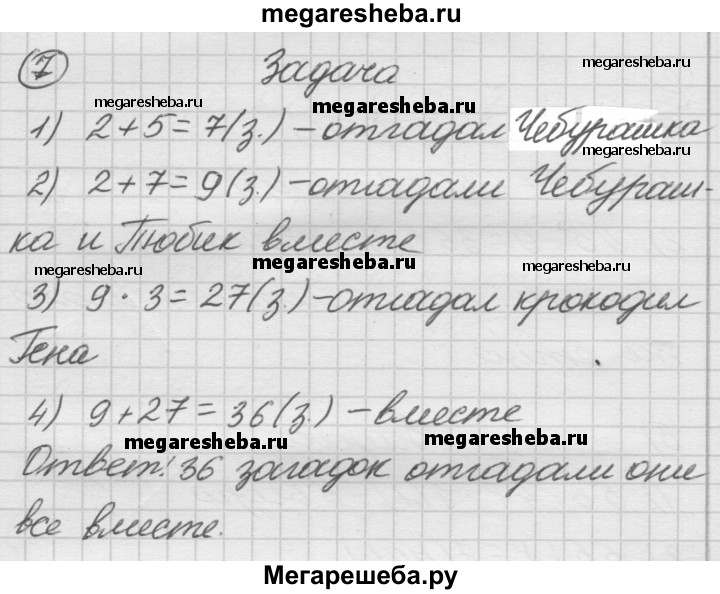 megaresheba.ru
7 Задача
megaresheba.ru
megaresheba.ru megaresheba.ru
1) 2+5=7(з.) – отгадал Чебурашка
megaresheba.ru
2) 2+7=9(з.) – отгадали Чебураш-
ка и Тюбик вместе
megaresheba.ru megaresheba.ru megaresheba.ru
3) 9 · 3 = 27(з.) – отгадал крокодил
Гена
4) 9+27=36(з.) – вместе
megaresheba.ru megaresheba.ru
Ответ: 36 загадок отгадали они
все вместе.
Мегарешеба.ру